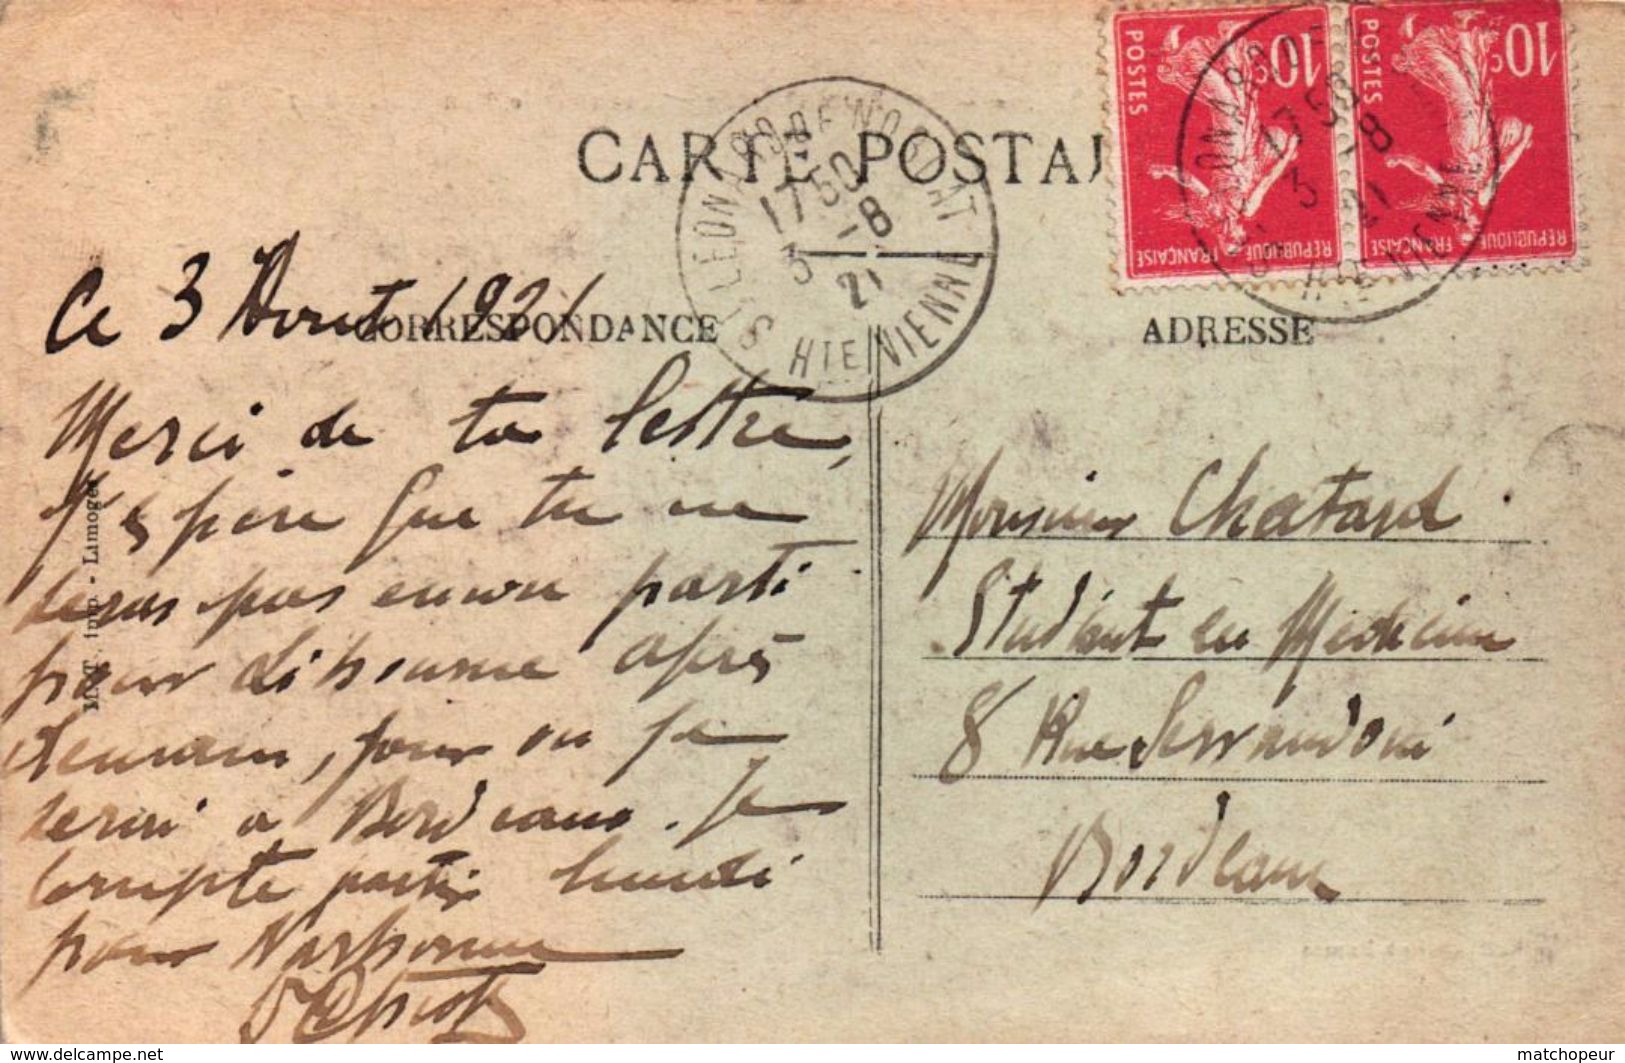 CARTE POSTA
CORRESPONDANCE
ADRESSE
ST LEONARD DE NOBLAT
17 50
3 -8
21
HTE VIENNE
10c
POSTES
REPUBLIQUE FRANÇAISE
10c
POSTES
REPUBLIQUE FRANÇAISE
17 50
3 -8
21
HTE VIENNE
imp. - Limoges
Ce 3 Aout 1921
Merci de ta lettre,
J'espère que tu ne
seras pas encore parti
pour Libourne après
demain, jour ou je
serai a Bordeaux. Je
compte partir lundi
pour Narbonne
Monsieur Chatard.
Etudiant en Medecine
8 Rue Servandoni
Bordeaux
www.delcampe.net
matchopeur